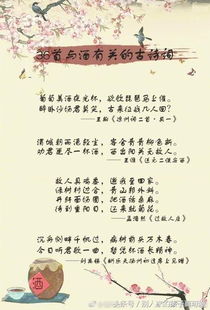 36首与酒有关的古诗词
葡萄美酒夜光杯，欲饮琵琶马上催。
醉卧沙场君莫笑，古来征战几人回？
——王翰《凉州词二首·其一》
渭城朝雨浥轻尘，客舍青青柳色新。
劝君更尽一杯酒，西出阳关无故人。
——王维《送元二使安西》
故人具鸡黍，邀我至田家。
绿树村边合，青山郭外斜。
开轩面场圃，把酒话桑麻。
待到重阳日，还来就菊花。
——孟浩然《过故人庄》
沉舟侧畔千帆过，病树前头万木春。
今日听君歌一曲，暂凭杯酒长精神。
——刘禹锡《酬乐天扬州初逢席上见赠》
酒